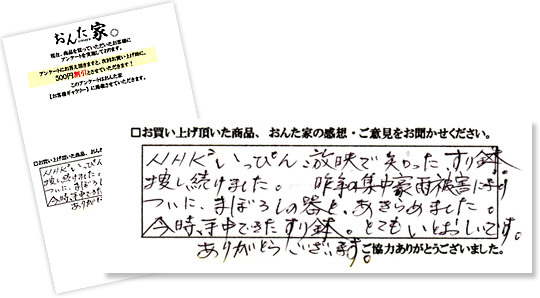 おんた家
現在、商品を買っていただいたお客様に
アンケートを実施しております。
アンケートにお答え頂きますと、次回お買い上げ時に、
500円割引とさせていただきます！
このアンケートはおんた家
【お客様ギャラリー】に掲載させていただきます。
□お買い上げ頂いた商品、おんた
NHK いっぴん
捜し続けました。
ついに、まぼろし
今時、手中できた
ありがと
□お買い上げ頂いた商品、おんた家の感想・ご意見をお聞かせください。
NHK いっぴん 放映で知ったすり鉢
捜し続けました。 昨年の集中豪雨被害により。
ついに、まぼろしの器と、あきらめました。
今時、手中できたすり鉢。とてもいとおしいです。
ありがとうございます。ご協力ありがとうございました。